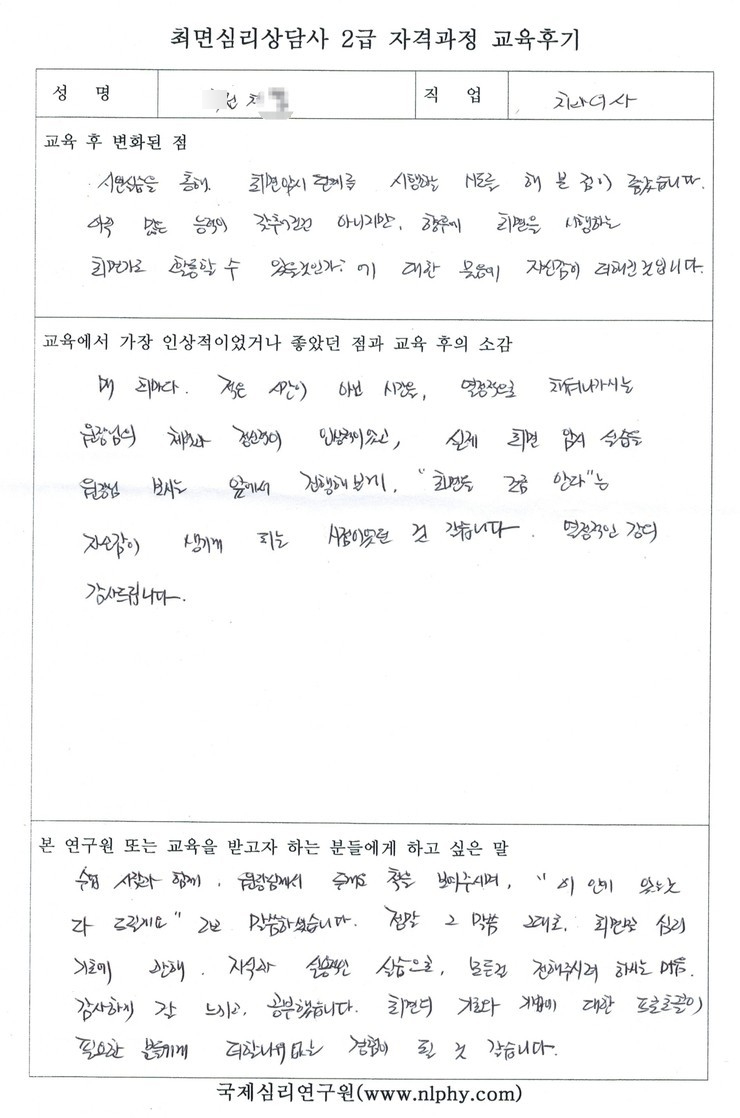 최면심리상담사 2급 자격과정 교육후기
성 명
직 업
교육 후 변화된 점
시연실습을 통해. 최면암시 단계를 시행하는 시도를 해 본 점이 좋았습니다.
아직 많은 능력이 갖추어진건 아니지만, 향후에 최면을 시행하는
최면가로 활동할 수 있을것인가? 에 대한 물음에 자신감이 더해진것입니다.
교육에서 가장 인상적이었거나 좋았던 점과 교육 후의 소감
매 회마다. 적은 시간이 아닌 시간을, 열정적으로 채워나가시는
원장님의 체력과 정신력이 인상적이었고, 실제 최면 암시 실습을
원장님 보시는 앞에서 진행해보며, "최면을 조금 안다"는
자신감이 생기게 되는 시점이었던 것 같습니다. 열정적인 강의
감사드립니다.
본 연구원 또는 교육을 받고자 하는 분들에게 하고 싶은 말
수업 시작과 함께, 원장님께서 책을 보여주시며, "이 안에 있는것
다 드릴게요" 라고 말씀하셨습니다. 정말 그 말씀 그대로, 최면과 심리
기초에 관해. 지식과 실용적인 실습으로, 모든걸 전해주시려 하시는 마음.
감사하게 잘 느끼고, 공부했습니다. 최면의 기초와 기법에 대한 프로토콜이
필요한 분들에게 더할나위없는 경험이 될 것 같습니다.
국제심리연구원(www.nlphy.com)